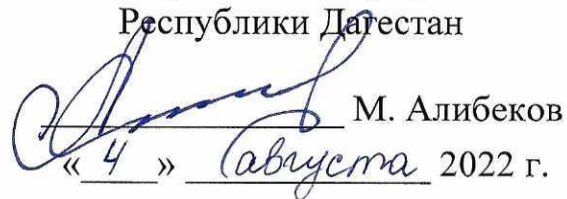 Республики Дагестан
М. Алибеков
« 4 » августа 2022 г.